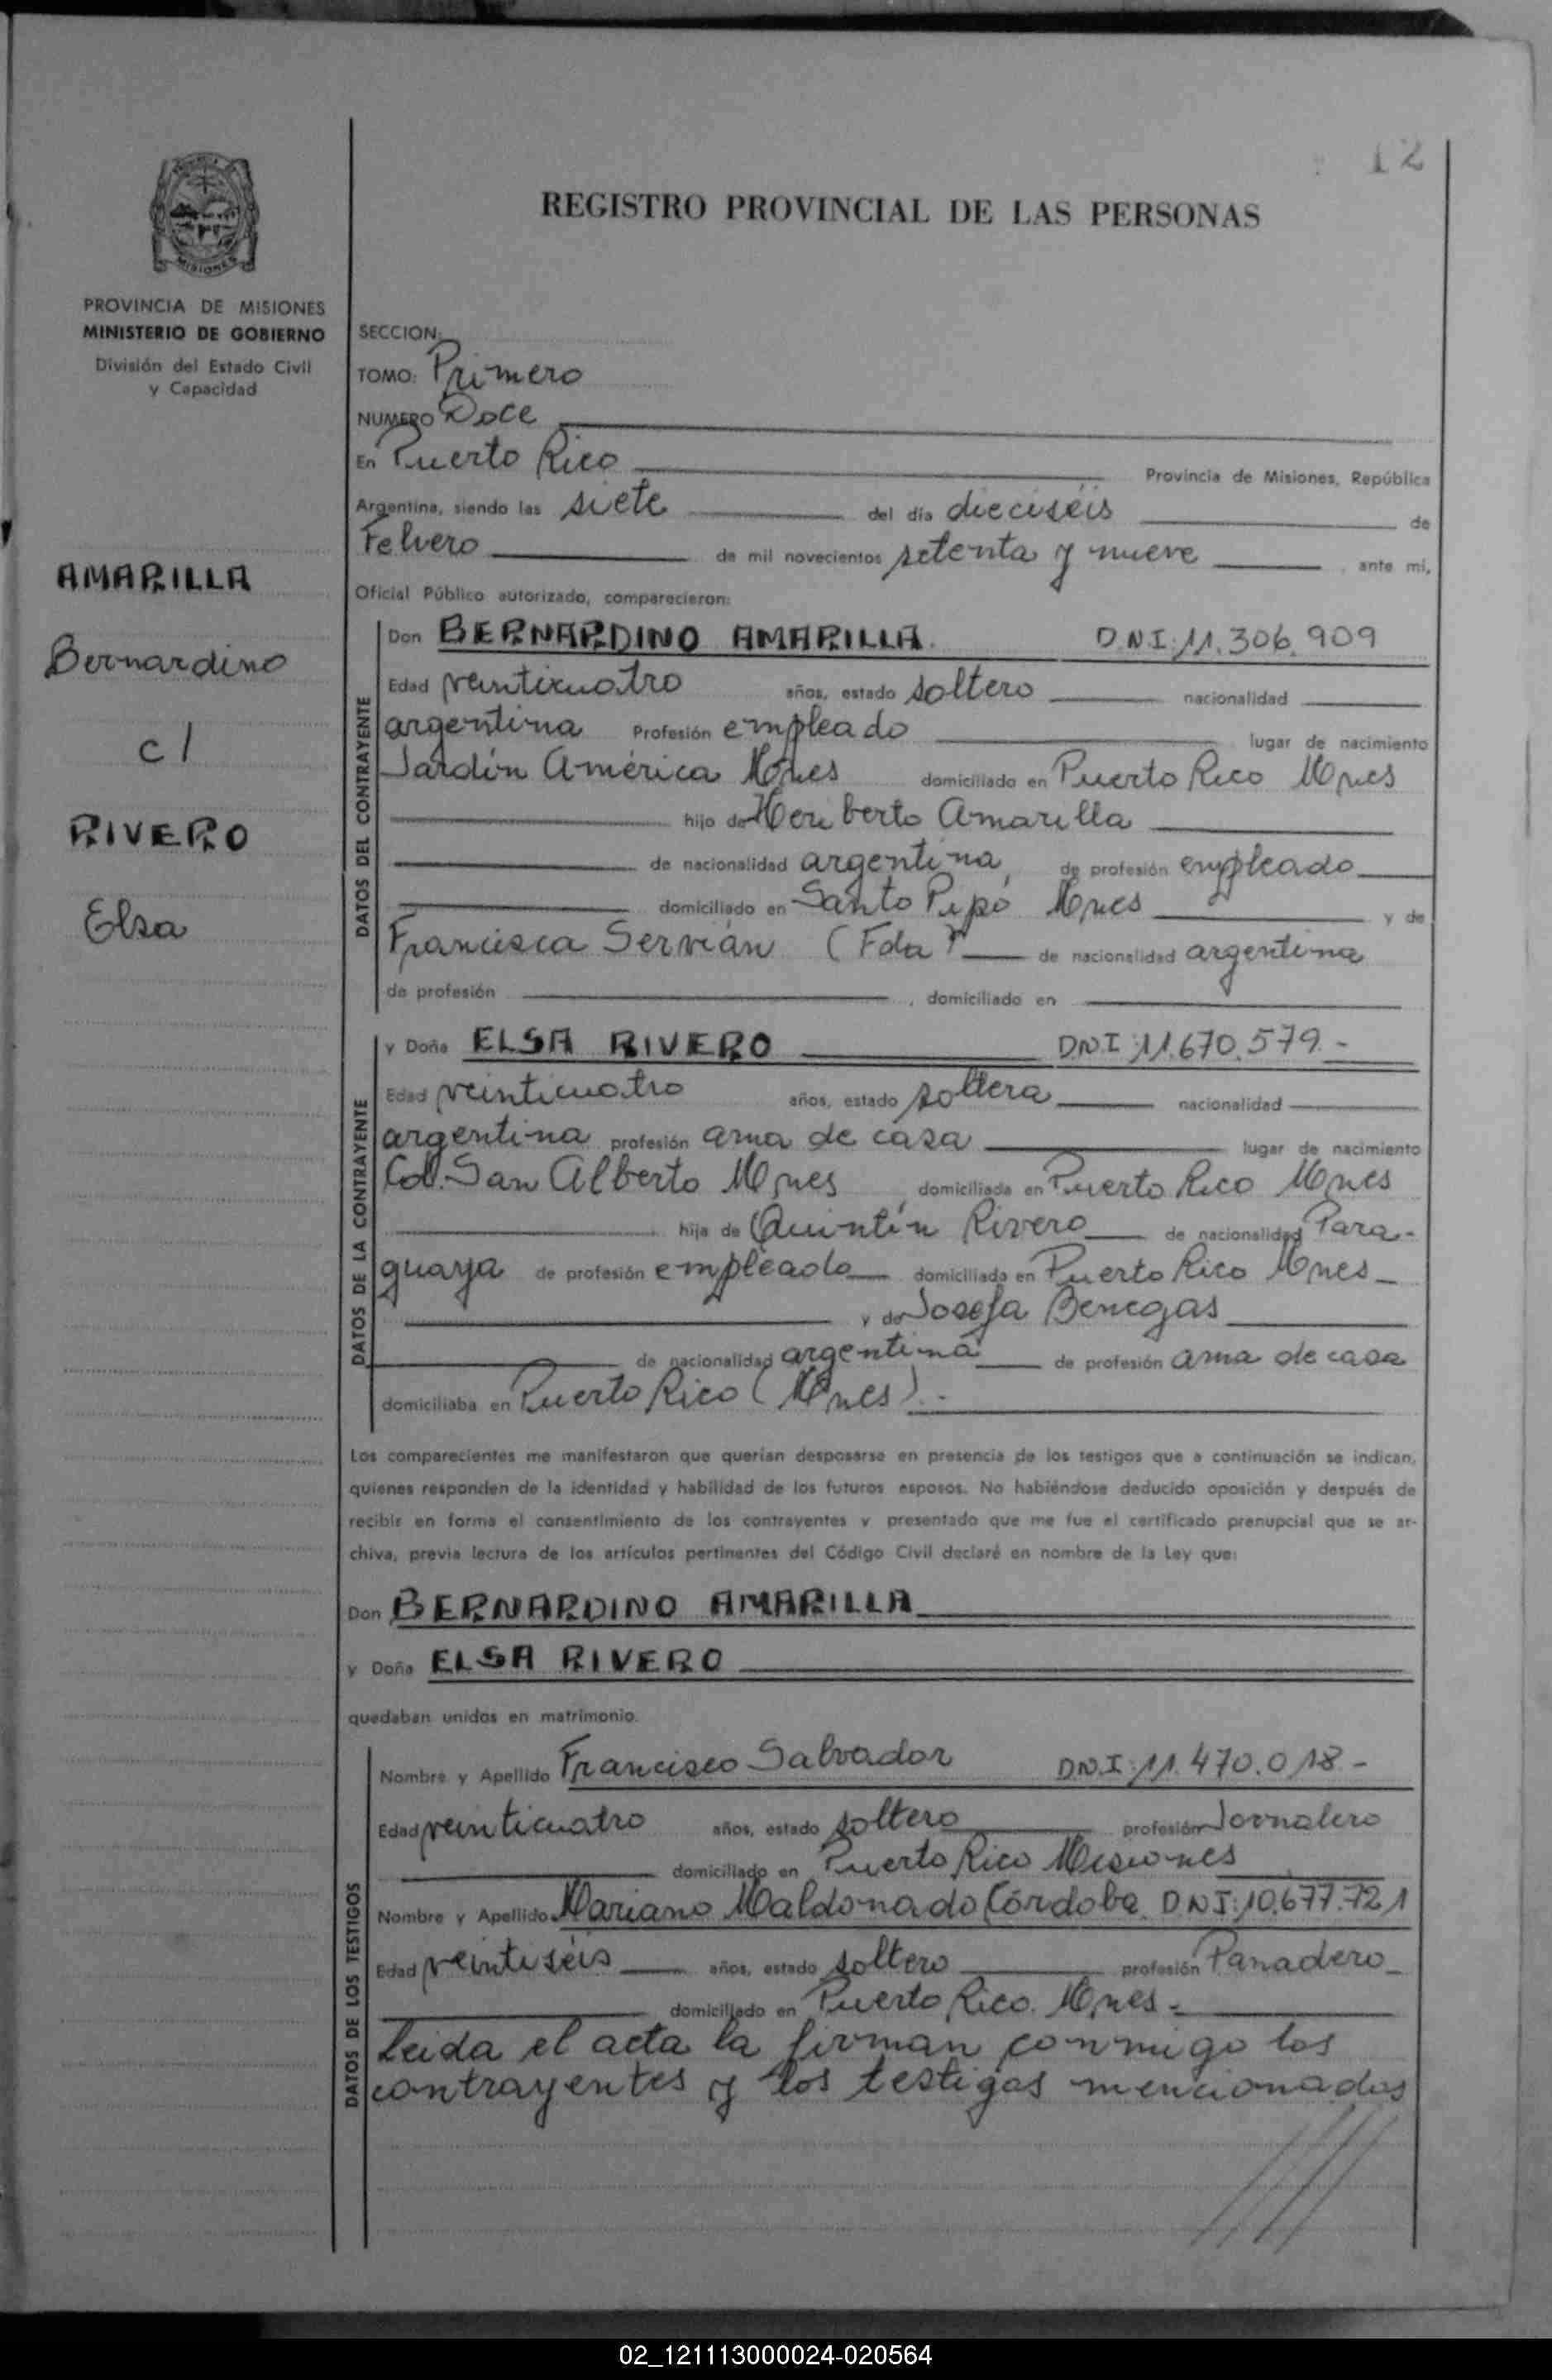 12
REGISTRO PROVINCIAL DE LAS PERSONAS
MISIONES
PROVINCIA DE MISIONES
MINISTERIO DE GOBIERNO
División del Estado Civil
y Capacidad
AMARILLA
Bernardino
c/
RIVERO
Elsa
SECCION:
TOMO: Primero
NUMERO Doce
En Puerto Rico Provincia de Misiones, República
Argentina, siendo las siete del día dieciséis de
Febrero de mil novecientos setenta y nueve ante mí,
Oficial Público autorizado, comparecieron:
DATOS DEL CONTRAYENTE
Don BERNARDINO AMARILLA. D.N.I: 11.306.909
Edad veinticuatro años, estado soltero nacionalidad
argentina Profesión empleado lugar de nacimiento
Jardín América Mnes domiciliado en Puerto Rico Mnes
hijo de Heriberto Amarilla
de nacionalidad argentina, de profesión empleado
domiciliado en Santo Pipó Mnes y de
Francisca Servián (Fda) de nacionalidad argentina
de profesión , domiciliado en
DATOS DE LA CONTRAYENTE
y Doña ELSA RIVERO D.N.I: 11.670.579.-
Edad veinticuatro años, estado soltera nacionalidad
argentina profesión ama de casa lugar de nacimiento
Col. San Alberto Mnes domiciliada en Puerto Rico Mnes
hija de Quintín Rivero de nacionalidad Para-
guaya de profesión empleado domiciliado en Puerto Rico Mnes
y de Josefa Benegas
de nacionalidad argentina de profesión ama de casa
domiciliaba en Puerto Rico (Mnes).-
Los comparecientes me manifestaron que querían desposarse en presencia de los testigos que a continuación se indican,
quienes responden de la identidad y habilidad de los futuros esposos. No habiéndose deducido oposición y después de
recibir en forma el consentimiento de los contrayentes y presentado que me fue el certificado prenupcial que se ar-
chiva, previa lectura de los artículos pertinentes del Código Civil declaré en nombre de la Ley que:
Don BERNARDINO AMARILLA
y Doña ELSA RIVERO
quedaban unidos en matrimonio.
DATOS DE LOS TESTIGOS
Nombre y Apellido Francisco Salvador D.N.I: 11.470.018-
Edad veinticuatro años, estado soltero profesión Jornalero
domiciliado en Puerto Rico Misiones
Nombre y Apellido Mariano Maldonado Córdoba. D.N.I: 10.677.721
Edad veintiséis años, estado soltero profesión Panadero
domiciliado en Puerto Rico. Mnes.-
Leida el acta la firman conmigo los
contrayentes y los testigos mencionados
02_121113000024-020564